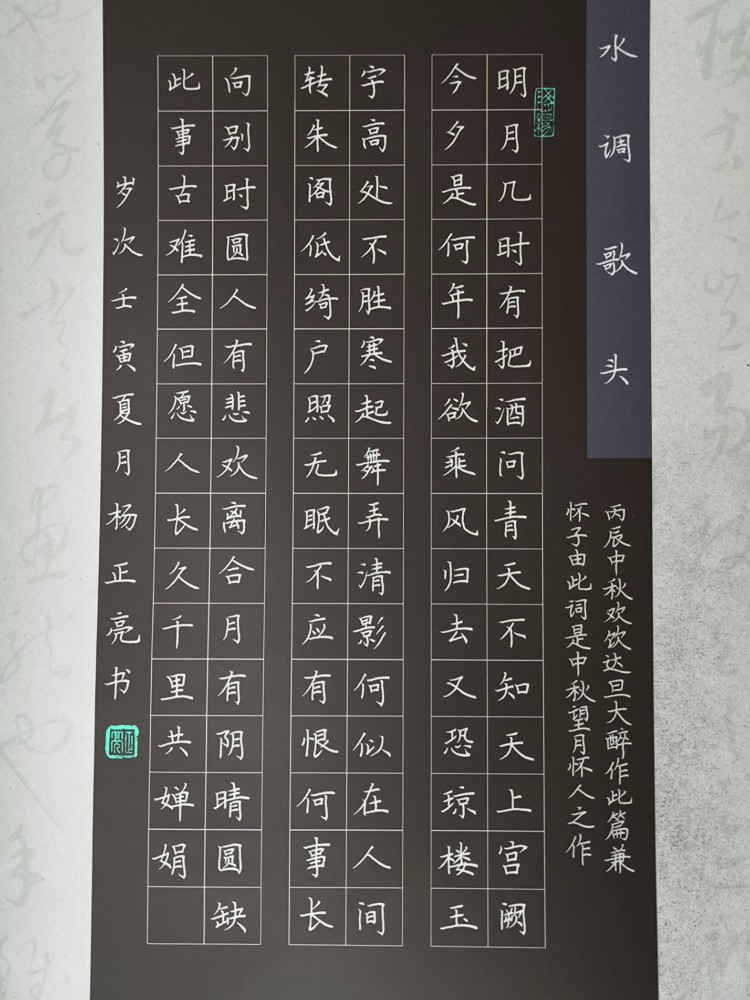 水调歌头
丙辰中秋欢饮达旦大醉作此篇兼
怀子由此词是中秋望月怀人之作
明月几时有把酒问青天不知天上宫阙
今夕是何年我欲乘风归去又恐琼楼玉
宇高处不胜寒起舞弄清影何似在人间
转朱阁低绮户照无眠不应有恨何事长
向别时圆人有悲欢离合月有阴晴圆缺
此事古难全但愿人长久千里共婵娟
岁次壬寅夏月杨正亮书